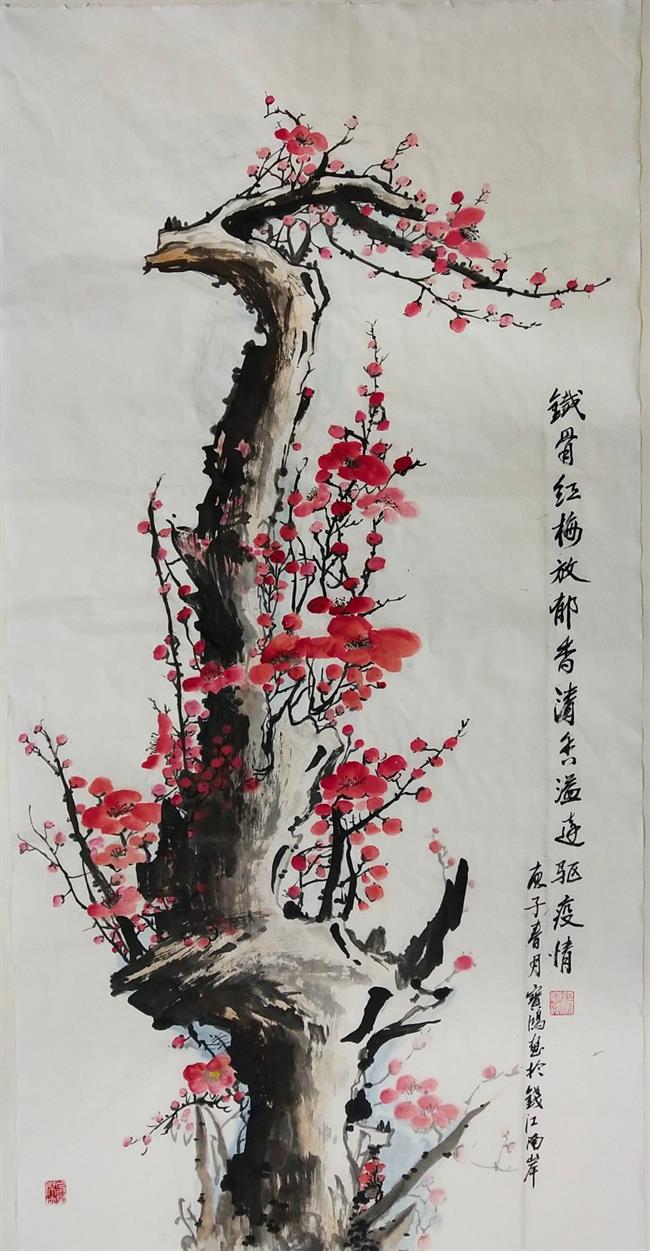 鐵骨红梅放郁香清香溢遠驱疫情
庚子春月寶鴻画於錢江南岸